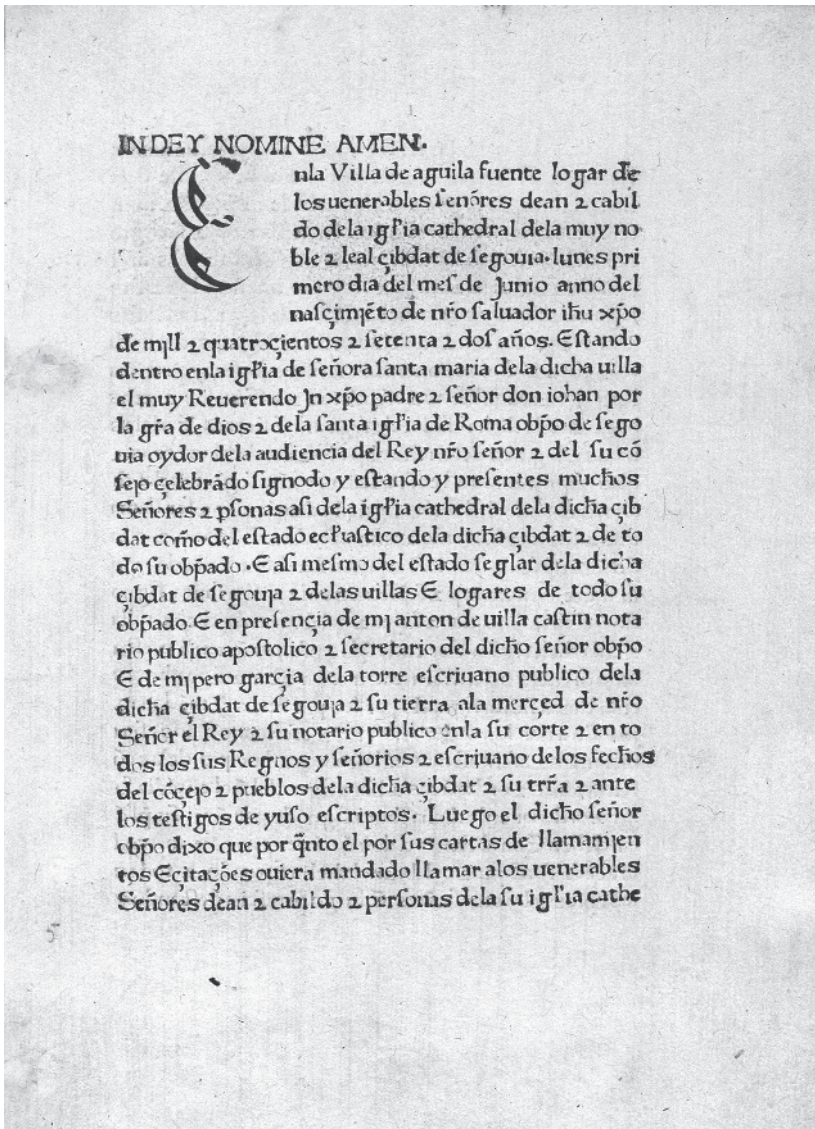 INDEY NOMINE AMEN.
Enla Villa de aguila fuente logar de
los uenerables señores dean ⁊ cabil
do dela igłia cathedral dela muy no
ble ⁊ leal çibdat de segouia. lunes pri
mero dia del mes de Junio anno del
nasçimjẽto de nr̃o saluador ihũ xp̃o
de mjll ⁊ quatroçientos ⁊ setenta ⁊ dos años. Estando
dentro enla igłia de señora santa maria dela dicha uilla
el muy Reuerendo Jn xp̃o padre ⁊ señor don iohan por
la gr̃a de dios ⁊ dela santa igłia de Roma obp̃o de sego
uia oydor dela audiencia del Rey nr̃o señor ⁊ del su cõ
sejo çelebrãdo signodo y estando y presentes muchos
Señores ⁊ psonas asi dela igłia cathedral dela dicha çib
dat com̃o del estado ecłiastico dela dicha çibdat ⁊ de to
do su obp̃ado. E asi mesmo del estado seglar dela dicha
çibdat de segouja ⁊ delas uillas E logares de todo su
obp̃ado. E en presençia de mj anton de uilla castin nota
rio publico apostolico ⁊ secretario del dicho señor obp̃o
E de mj pero garçia dela torre escriuano publico dela
dicha çibdat de segouja ⁊ su tierra ala merçed de nr̃o
Señor el Rey ⁊ su notario publico enla su corte ⁊ en to
dos los sus Regnos y señorios ⁊ escrjuano delos fechos
del cõçejo ⁊ pueblos dela dicha çibdat ⁊ su trr̃a ⁊ ante
los testigos de yuso escriptos. Luego el dicho señor
obp̃o dixo que por q̃nto el por sus cartas de llamamjen
tos Eçitações ouiera mandado llamar alos uenerables
Señores dean ⁊ cabildo ⁊ personas dela su igłia cathe
5